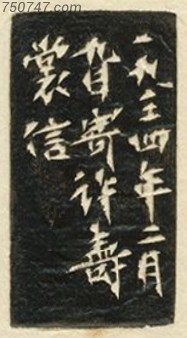 750747.com
一九三四年二月
九日寄許壽
裳信